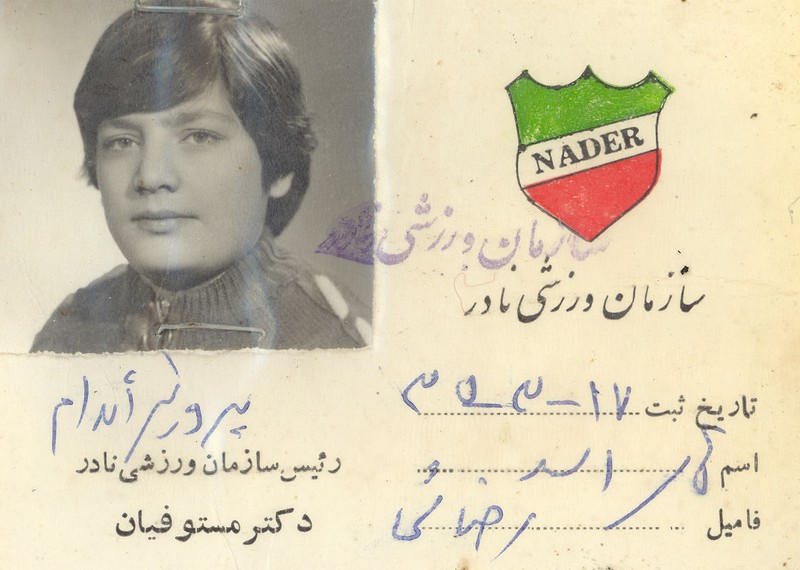 NADER
سازمان ورزشی نادر
سازمان ورزشی نادر
تاریخ ثبت ۱۷-۳-
اسم
فامیل رضائی
پرورش أندام
رئیس سازمان ورزشی نادر
دکتر مستوفیان